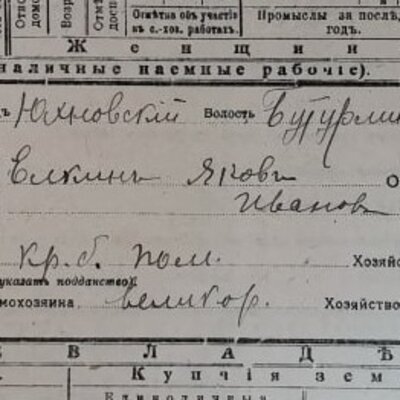 Отмѣтка объ участіи
въ с.-хоз. работахъ.
Промыслы за послѣд
годъ.
Женщин
наличные наемные рабочіе).
ъ Юхновскій Волость Бутурли
Елкинъ Яковъ
Иванов
Кр. б. пом. Хозяй
указать подданство).
мохозяина великор. Хозяйство
В Л А Д Ѣ
Купчія зем
Единоличныя